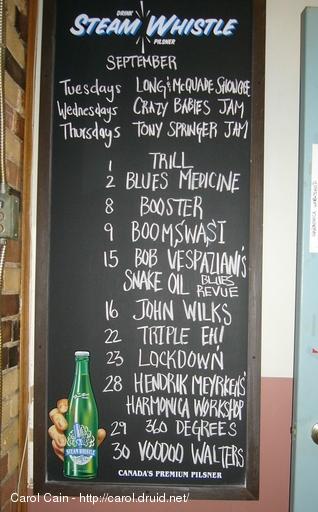 DRINK
STEAM WHISTLE
PILSNER
SEPTEMBER
Tuesdays LONG & McQUADE SHOWCASE
Wednesdays CRAZY BABIES JAM
Thursdays TONY SPRINGER JAM
1 TRILL
2 BLUES MEDICINE
8 BOOSTER
9 BOOMSWASI
15 BOB VESPAZIANI'S
SNAKE OIL BLUES
REVUE
16 JOHN WILKS
22 TRIPLE EH!
23 LOCKDOWN
28 HENDRIK MEYRKENS'
HARMONICA WORKSHOP
29 360 DEGREES
30 VOODOO WALTERS
STEAM WHISTLE
CANADA'S PREMIUM PILSNER
Carol Cain - http://carol.druid.net/